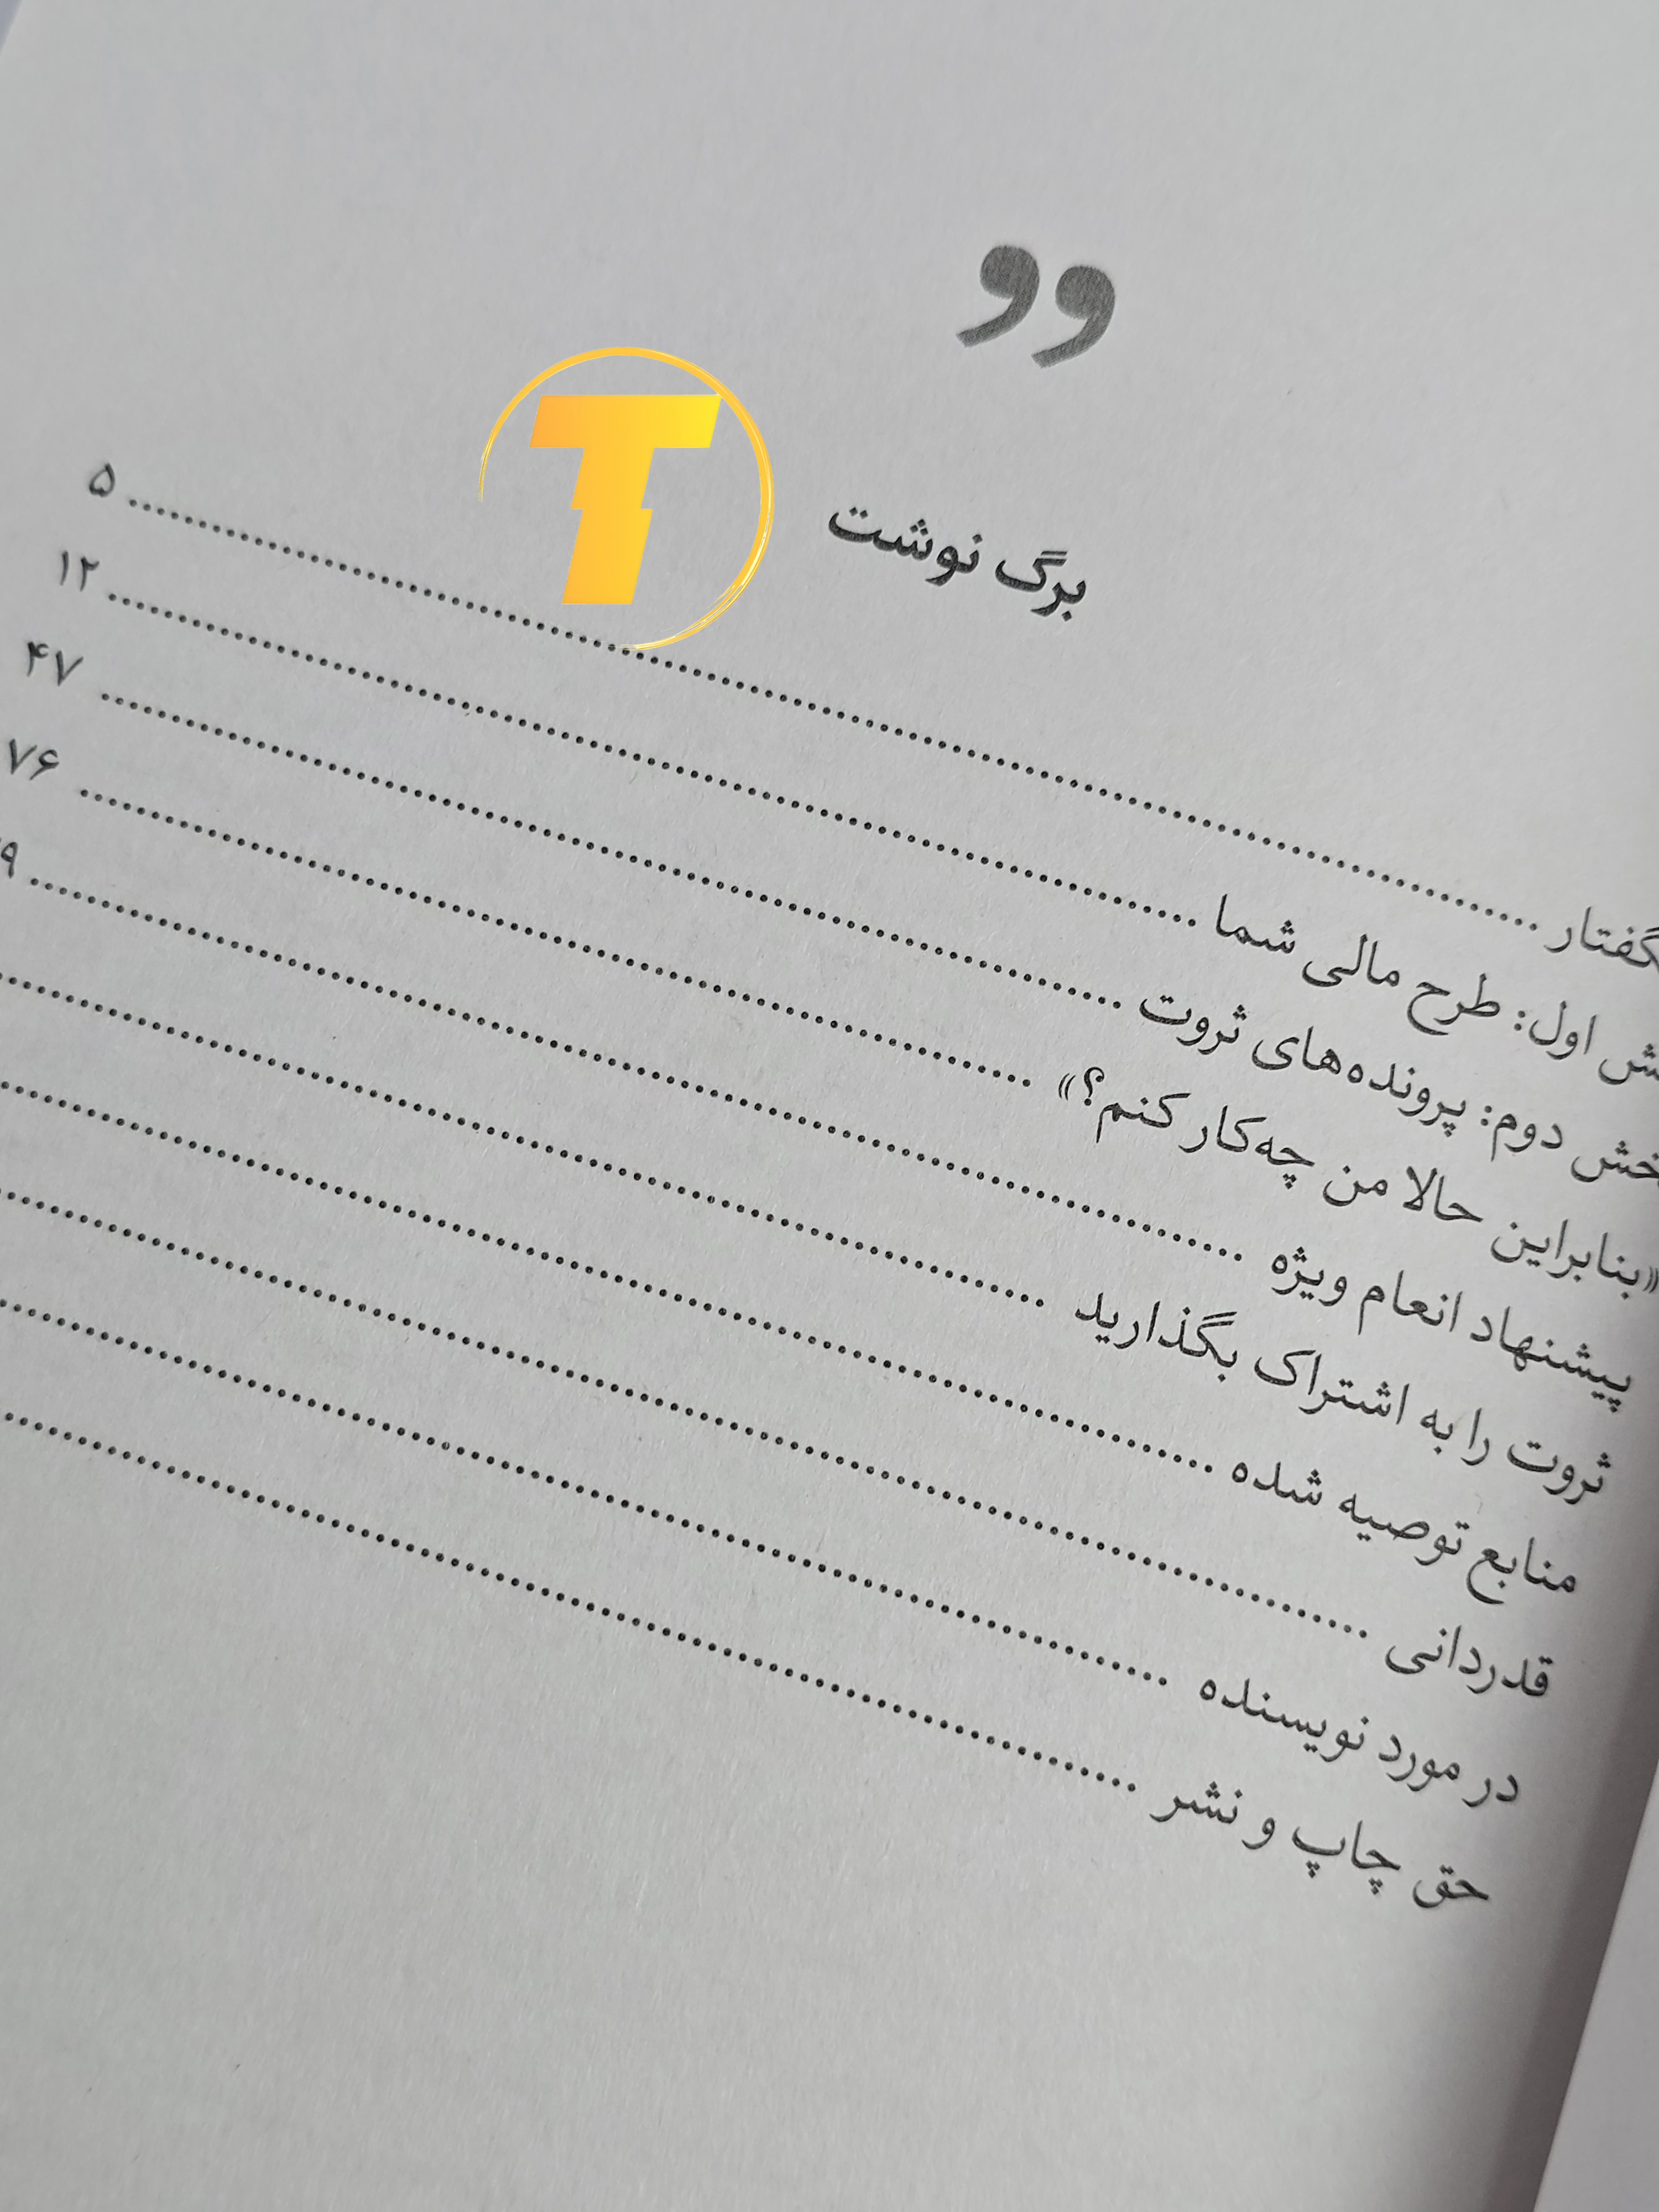 برگ نوشت
گفتار ........ ۵
ش اول: طرح مالی شما ........ ۱۲
خش دوم: پرونده‌های ثروت ........ ۴۷
«بنابراین حالا من چه‌کار کنم؟» ........ ۷۶
پیشنهاد انعام ویژه ........ ۹
ثروت را به اشتراک بگذارید ........
منابع توصیه شده ........
قدردانی ........
در مورد نویسنده ........
حق چاپ و نشر ........
T